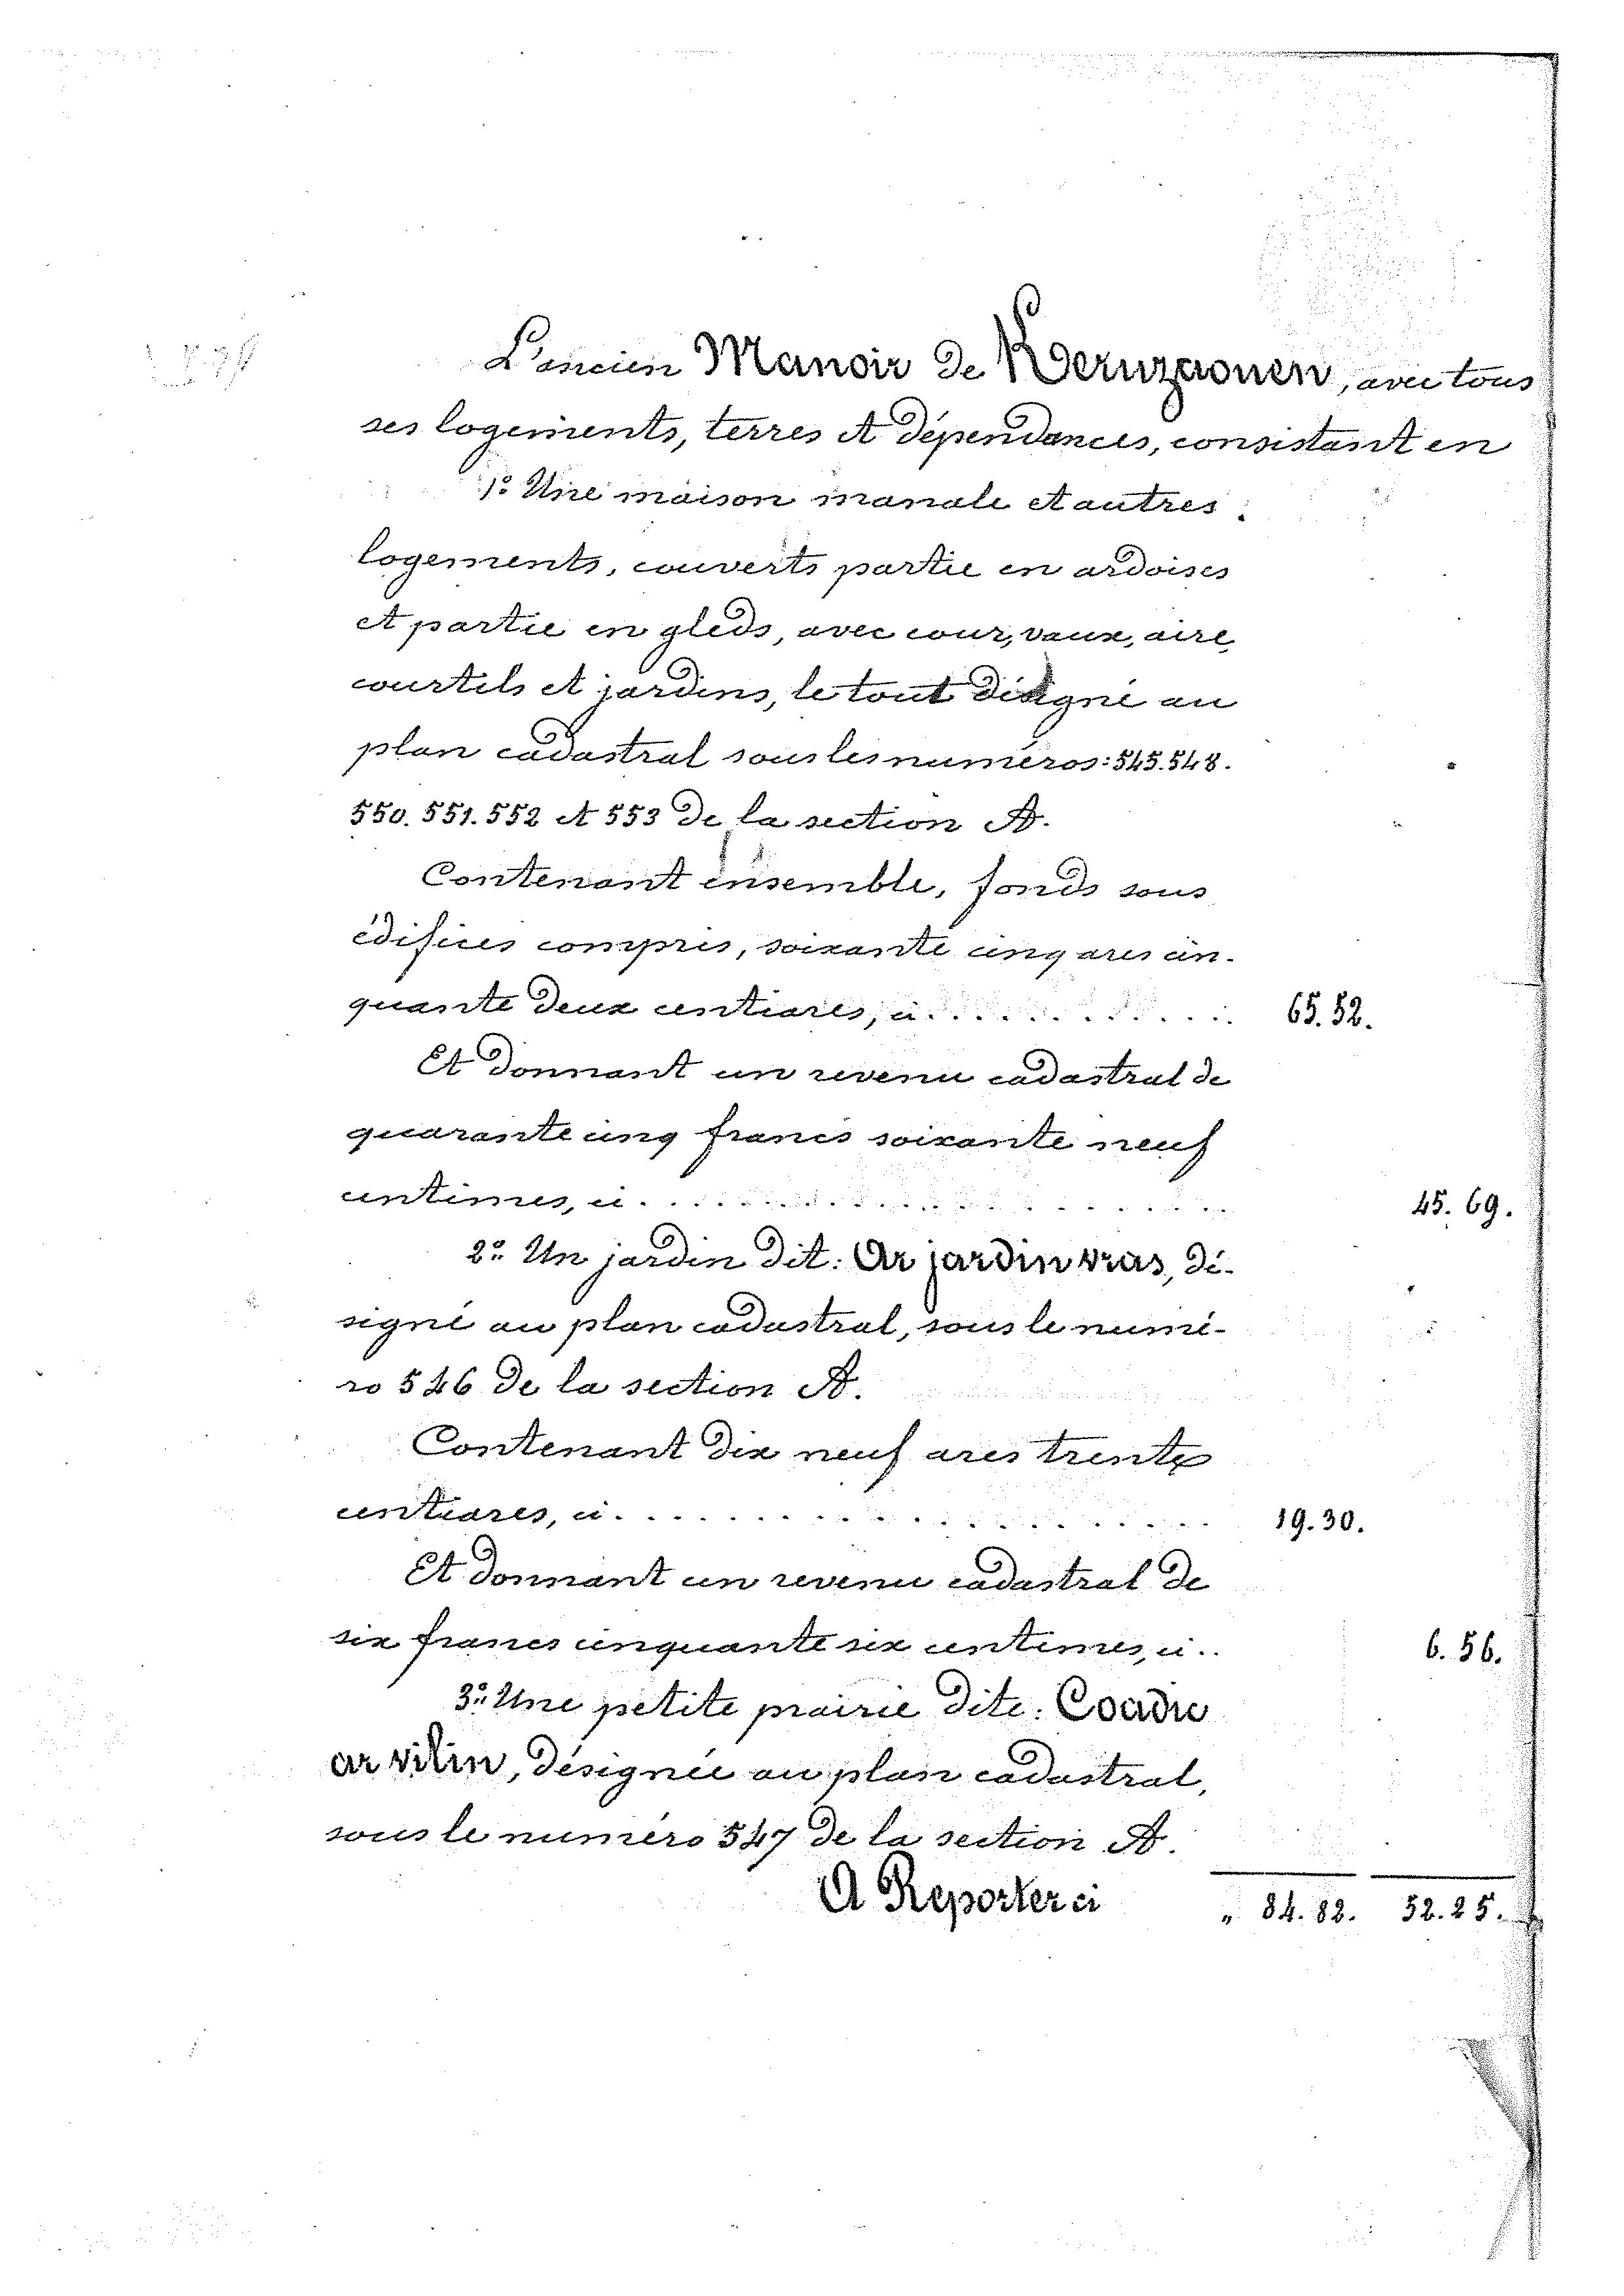 L'ancien Manoir de Keruzaouen, avec tous
ses logements, terres et dépendances, consistant en
1º. Une maison manale et autres
logements, couverts partie en ardoises
et partie en gleds, avec cour, vaux, aire,
courtils et jardins, le tout désigné au
plan cadastral sous les numéros: 545. 548.
550. 551. 552 et 553 de la section A.
Contenant ensemble, fonds sous
édifices compris, soixante cinq ares cin-
quante deux centiares, ci. . . . . . . . . . . 65. 52.
Et donnant un revenu cadastral de
quarante cinq francs soixante neuf
centimes, ci. . . . . . . . . . . . . . . . . . . 45. 69.
2º. Un jardin dit: Ar jardin vras, dé-
signé au plan cadastral, sous le numé-
ro 546 de la section A.
Contenant dix neuf ares trente
centiares, ci. . . . . . . . . . . . . . . . . . 19. 30.
Et donnant un revenu cadastral de
six francs cinquante six centimes, ci. . 6. 56.
3º. Une petite prairie dite: Coadic
ar vilin, désignée au plan cadastral,
sous le numéro 547 de la section A.
A Reporter ci „ 84. 82. 52. 25.